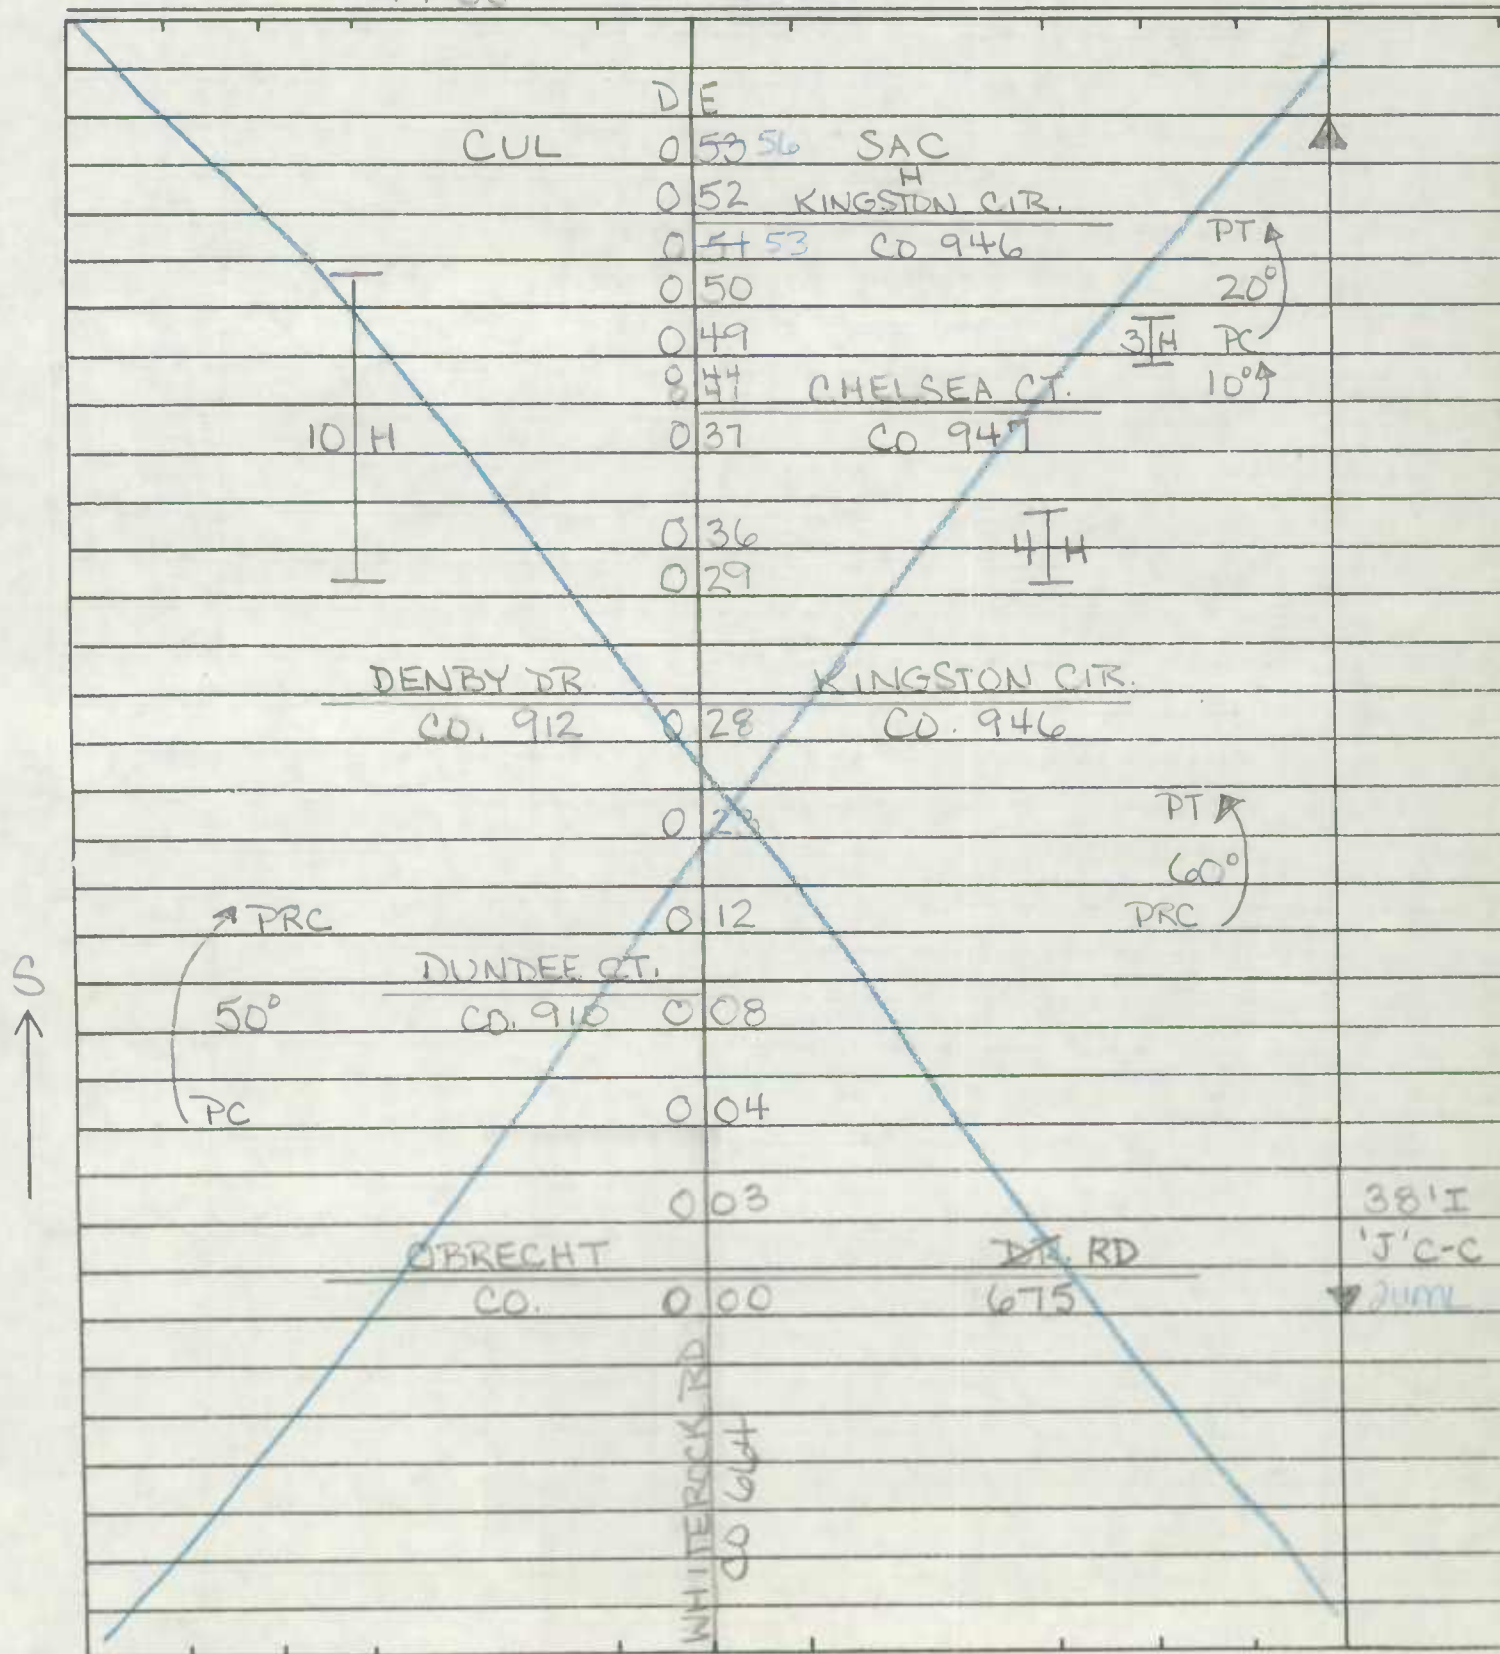 D E
CUL 0 53 56 SAC
H
0 52 KINGSTON CIR.
0 51 53 CO 946 PT
0 50 20°
0 49 3 H PC
0 44 CHELSEA CT. 10°
0 41
10 H 0 37 CO 947
0 36 4 H
0 29
DENBY DR KINGSTON CIR.
CO. 912 0 28 CO. 946
PT
0 23
60°
PRC 0 12 PRC
DUNDEE CT.
50° CO. 910 0 08
PC 0 04
S
0 03 38' I
OBRECHT DR. RD 'J' C-C
CO. 0 00 675
WHITEROCK RD
CO 664